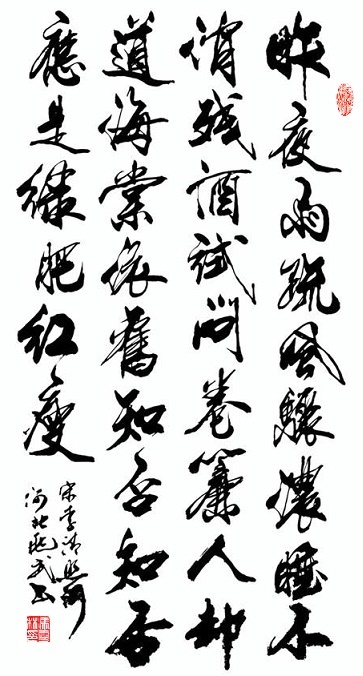 昨夜雨疏風驟濃睡不
消残酒試問卷簾人却
道海棠依舊知否知否
應是綠肥紅瘦
宋李清照詞
河北